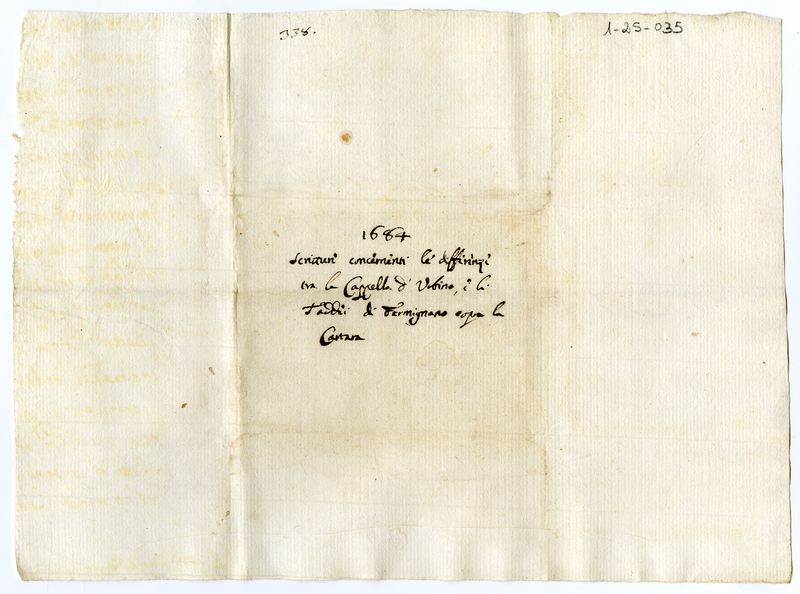 338.
1-25-035
1684
Scritture concernenti le differenze
tra la Cappella d' Urbino, e li
Taddei di Fermignano sopra la
Cartara